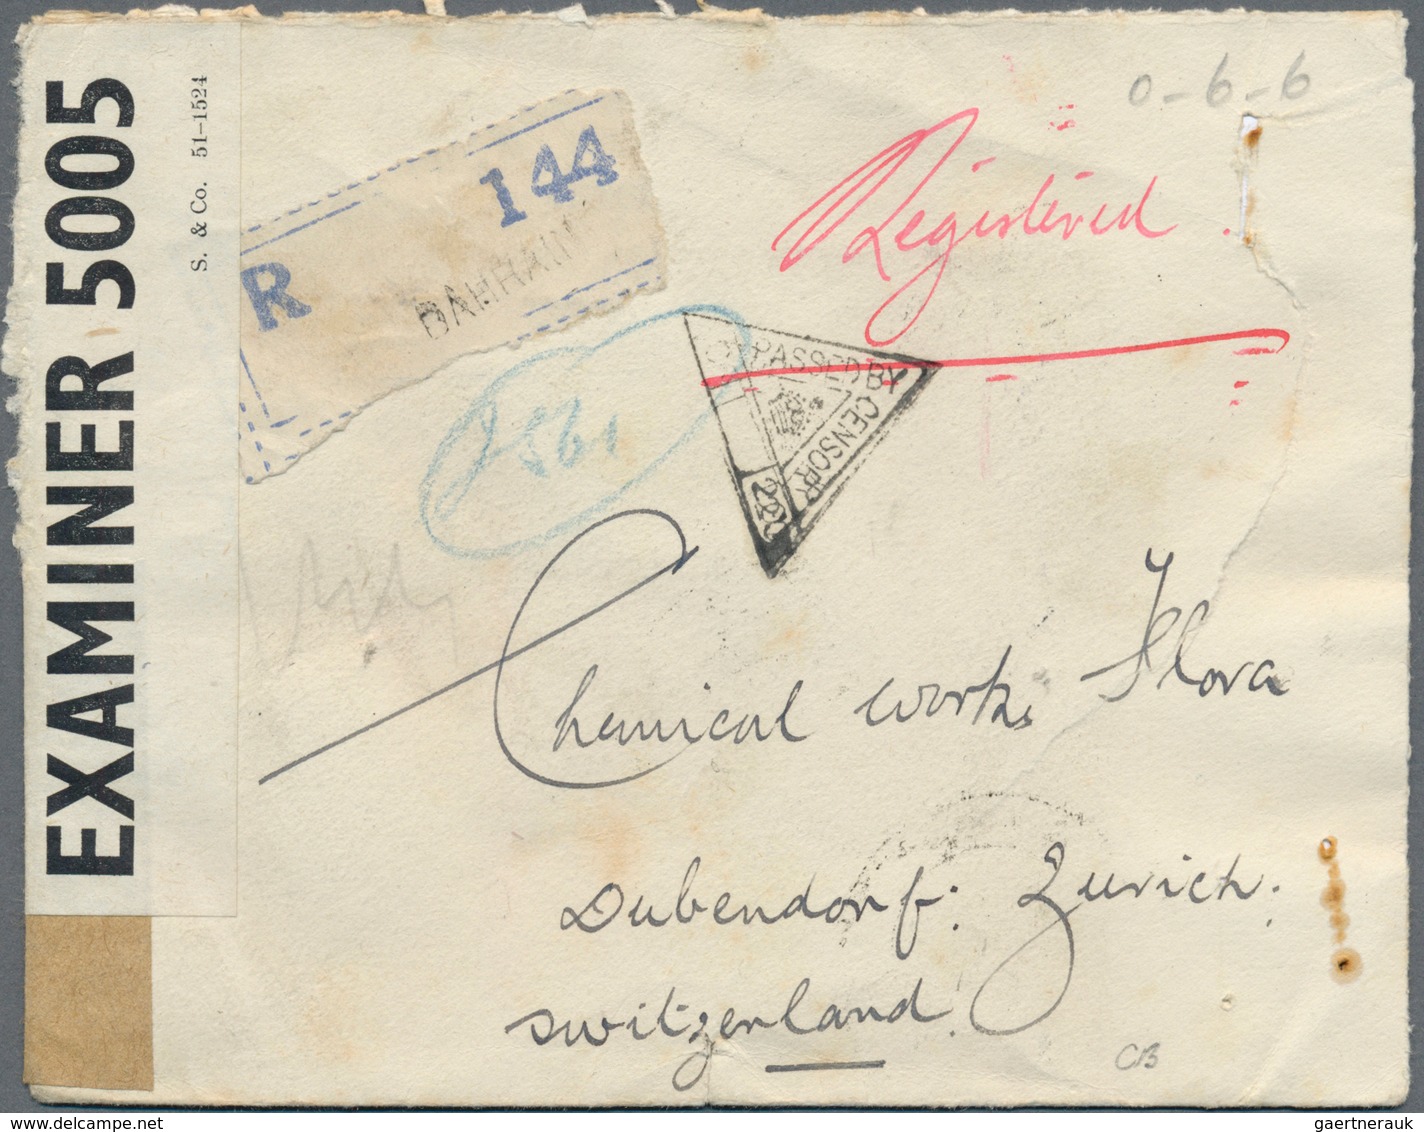 EXAMINER 5005
S. & Co. 51-1524
R 144
BAHRAIN
0-6-6
Registered.
PASSED BY
CENSOR
Chemical works Flora
Dubendorf: Zurich.
Switzerland.
CB
gaertnerauk